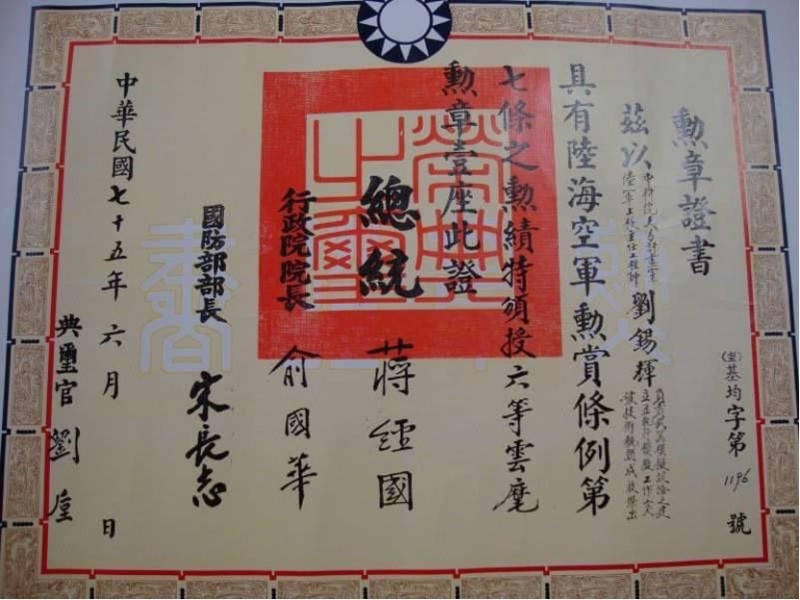 基均字第1196號
勳章證書
茲以
中科院天弓計畫室
陸軍上校主任工程師
劉錫輝
具有陸海空軍勳賞條例第
七條之勳績特頒授六等雲麾
勳章壹座此證
榮典之璽
總統 蔣經國
行政院院長 俞國華
國防部部長 宋長志
中華民國七十五年六月 日
典璽官 劉垕